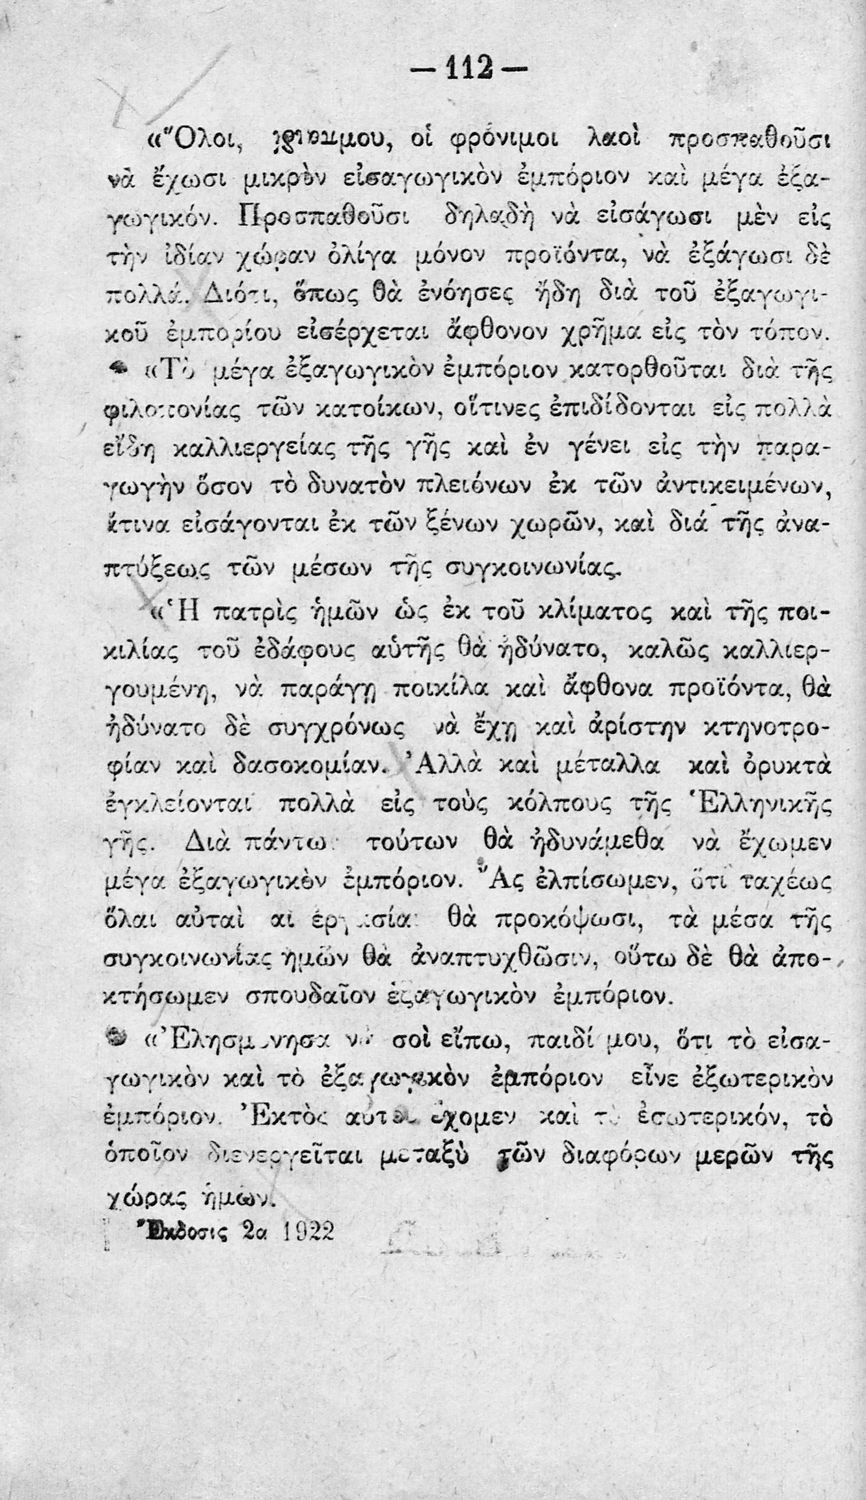 — 112 —
«Ὅλοι, μου, οἱ φρόνιμοι λαοὶ προσπαθοῦσι
νὰ ἔχωσι μικρὸν εἰσαγωγικὸν ἐμπόριον καὶ μέγα ἐξα-
γωγικόν. Προσπαθοῦσι δηλαδὴ νὰ εἰσάγωσι μὲν εἰς
τὴν ἰδίαν χώραν ὀλίγα μόνον προϊόντα, νὰ ἐξάγωσι δὲ
πολλά. Διότι, ὅπως θὰ ἐνόησες ἤδη διὰ τοῦ ἐξαγωγι-
κοῦ ἐμπορίου εἰσέρχεται ἄφθονον χρῆμα εἰς τὸν τόπον.
«Τὸ μέγα ἐξαγωγικὸν ἐμπόριον κατορθοῦται διὰ τῆς
φιλοπονίας τῶν κατοίκων, οἵτινες ἐπιδίδονται εἰς πολλὰ
εἴδη καλλιεργείας τῆς γῆς καὶ ἐν γένει εἰς τὴν παρα-
γωγὴν ὅσον τὸ δυνατὸν πλειόνων ἐκ τῶν ἀντικειμένων,
ἅτινα εἰσάγονται ἐκ τῶν ξένων χωρῶν, καὶ διά τῆς ἀνα-
πτύξεως τῶν μέσων τῆς συγκοινωνίας.
«Ἡ πατρὶς ἡμῶν ὡς ἐκ τοῦ κλίματος καὶ τῆς ποι-
κιλίας τοῦ ἐδάφους αὑτῆς θὰ ἠδύνατο, καλῶς καλλιερ-
γουμένη, νὰ παράγῃ ποικίλα καὶ ἄφθονα προϊόντα, θὰ
ἠδύνατο δὲ συγχρόνως νὰ ἔχῃ καὶ ἀρίστην κτηνοτρο-
φίαν καὶ δασοκομίαν. Ἀλλὰ καὶ μέταλλα καὶ ὀρυκτὰ
ἐγκλείονται πολλὰ εἰς τοὺς κόλπους τῆς Ἑλληνικῆς
γῆς. Διὰ πάντων τούτων θὰ ἠδυνάμεθα νὰ ἔχωμεν
μέγα ἐξαγωγικὸν ἐμπόριον. Ἂς ἐλπίσωμεν, ὅτι ταχέως
ὅλαι αὐταὶ αἱ ἐργασίαι θὰ προκόψωσι, τὰ μέσα τῆς
συγκοινωνίας ἡμῶν θὰ ἀναπτυχθῶσιν, οὕτω δὲ θὰ ἀπο-
κτήσωμεν σπουδαῖον ἐξαγωγικὸν ἐμπόριον.
«Ἐλησμόνησα νὰ σοὶ εἴπω, παιδί μου, ὅτι τὸ εἰσα-
γωγικὸν καὶ τὸ ἐξαγωγικὸν ἐμπόριον εἶνε ἐξωτερικὸν
ἐμπόριον. Ἐκτὸς αὐτοῦ ἔχομεν καὶ τὸ ἐσωτερικόν, τὸ
ὁποῖον διενεργεῖται μεταξὺ τῶν διαφόρων μερῶν τῆς
χώρας ἡμῶν.
Ἔκδοσις 2α 1922